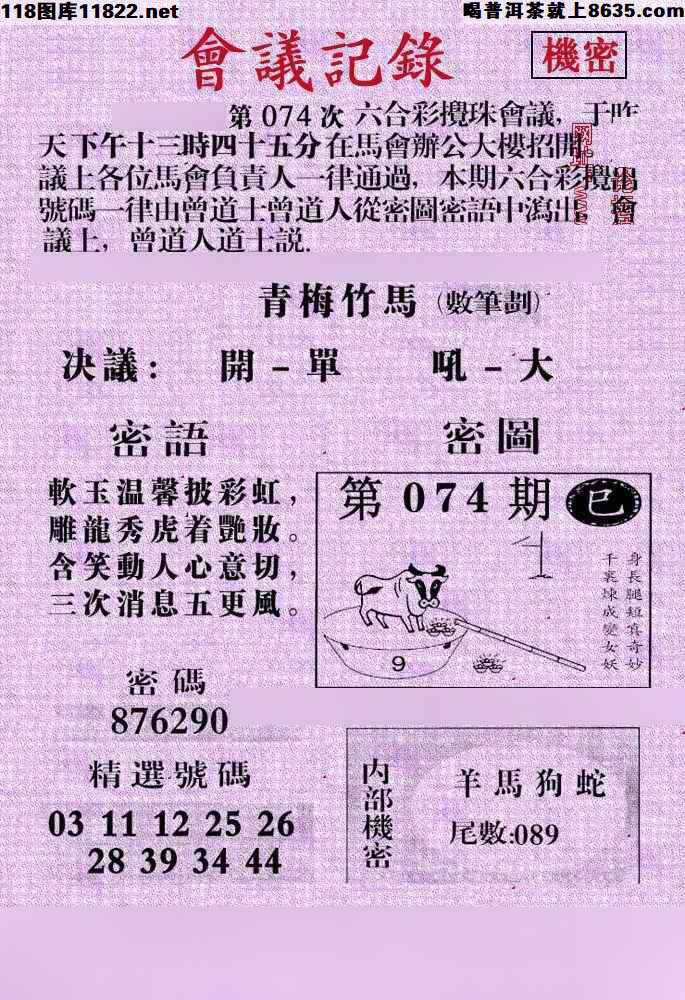 118图库11822.net
喝普洱茶就上8635.com
會議記錄
機密
第074次 六合彩攪珠會議，于昨
天下午十三時四十五分在馬會辦公大樓招開,
議上各位馬會負責人一律通過，本期六合彩攪出
號碼一律由曾道士曾道人從密圖密語中瀉出，會
議上，曾道人道士説.
青梅竹馬（數筆劃）
决議：開－單 吼－大
密語
軟玉温馨披彩虹，
雕龍秀虎着艷妝。
含笑動人心意切，
三次消息五更風。
密圖
第074期 巳
身長腿短真奇妙
千裏煉成變女妖
9
密碼
876290
精選號碼
03 11 12 25 26
28 39 34 44
内部機密
羊馬狗蛇
尾數:089